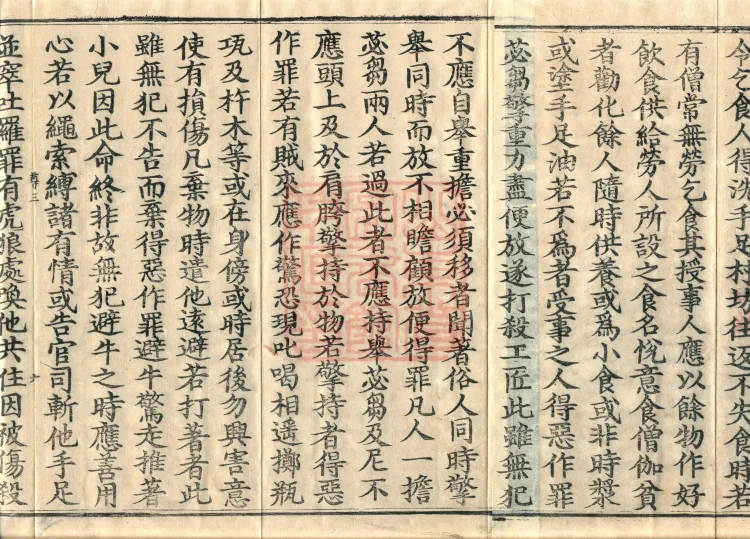 令乞食人得洗手足村坊往返不失食時若
有僧常無勞乞食其授事人應以餘物作好
飲食供給勞人所設之食名悅意食僧伽貧
者勸化餘人隨時供養或為小食或非時漿
或塗手足油若不為者受事之人得惡作罪
苾芻擎重力盡便放遂打殺工匠此雖無犯
不應自舉重擔必須移者聞著俗人同時擎
舉同時而放不相瞻顧放便得罪凡人一擔
苾芻兩人若過此者不應持舉苾芻及尼不
應頭上及於肩胯擎持於物若擎持者得惡
作罪若有賊來應作驚恐現叱喝相遥擲瓶
㼚及杵木等或在身傍或時居後勿興害意
使有損傷凡棄物時遣他遠避若打著者此
雖無犯不告而棄得惡作罪避牛驚走推著
小兒因此命終非故無犯避牛之時應善用
心若以繩索縛諸有情或告官司斬他手足
並窣吐羅罪有虎狼處喚他共住因被傷殺